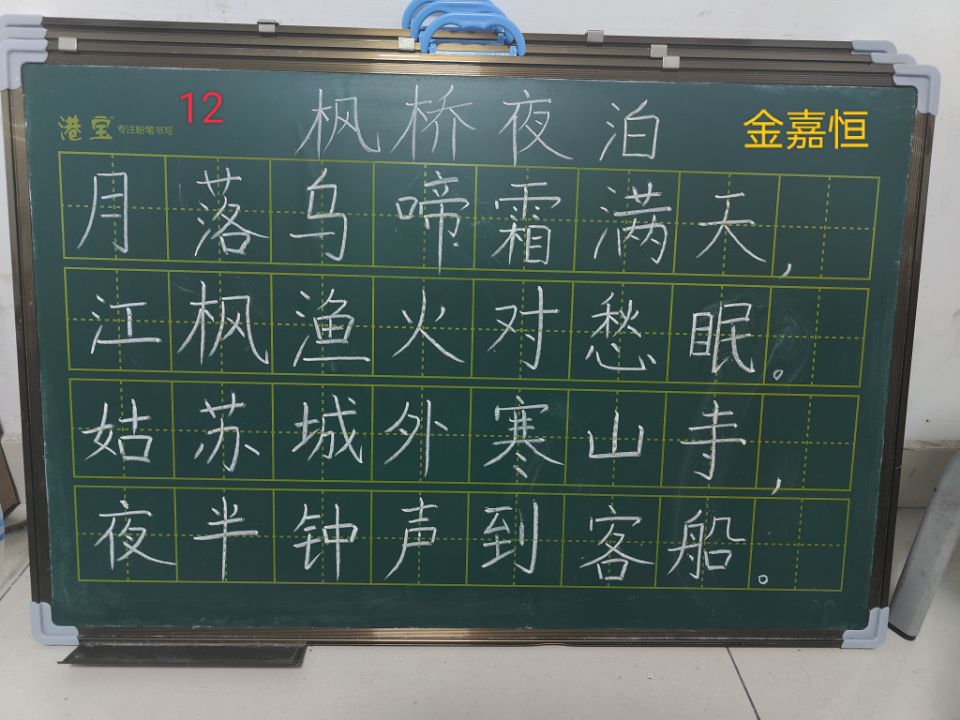 12
金嘉恒
港宝 专注粉笔书写
枫桥夜泊
月落乌啼霜满天，
江枫渔火对愁眠。
姑苏城外寒山寺，
夜半钟声到客船。